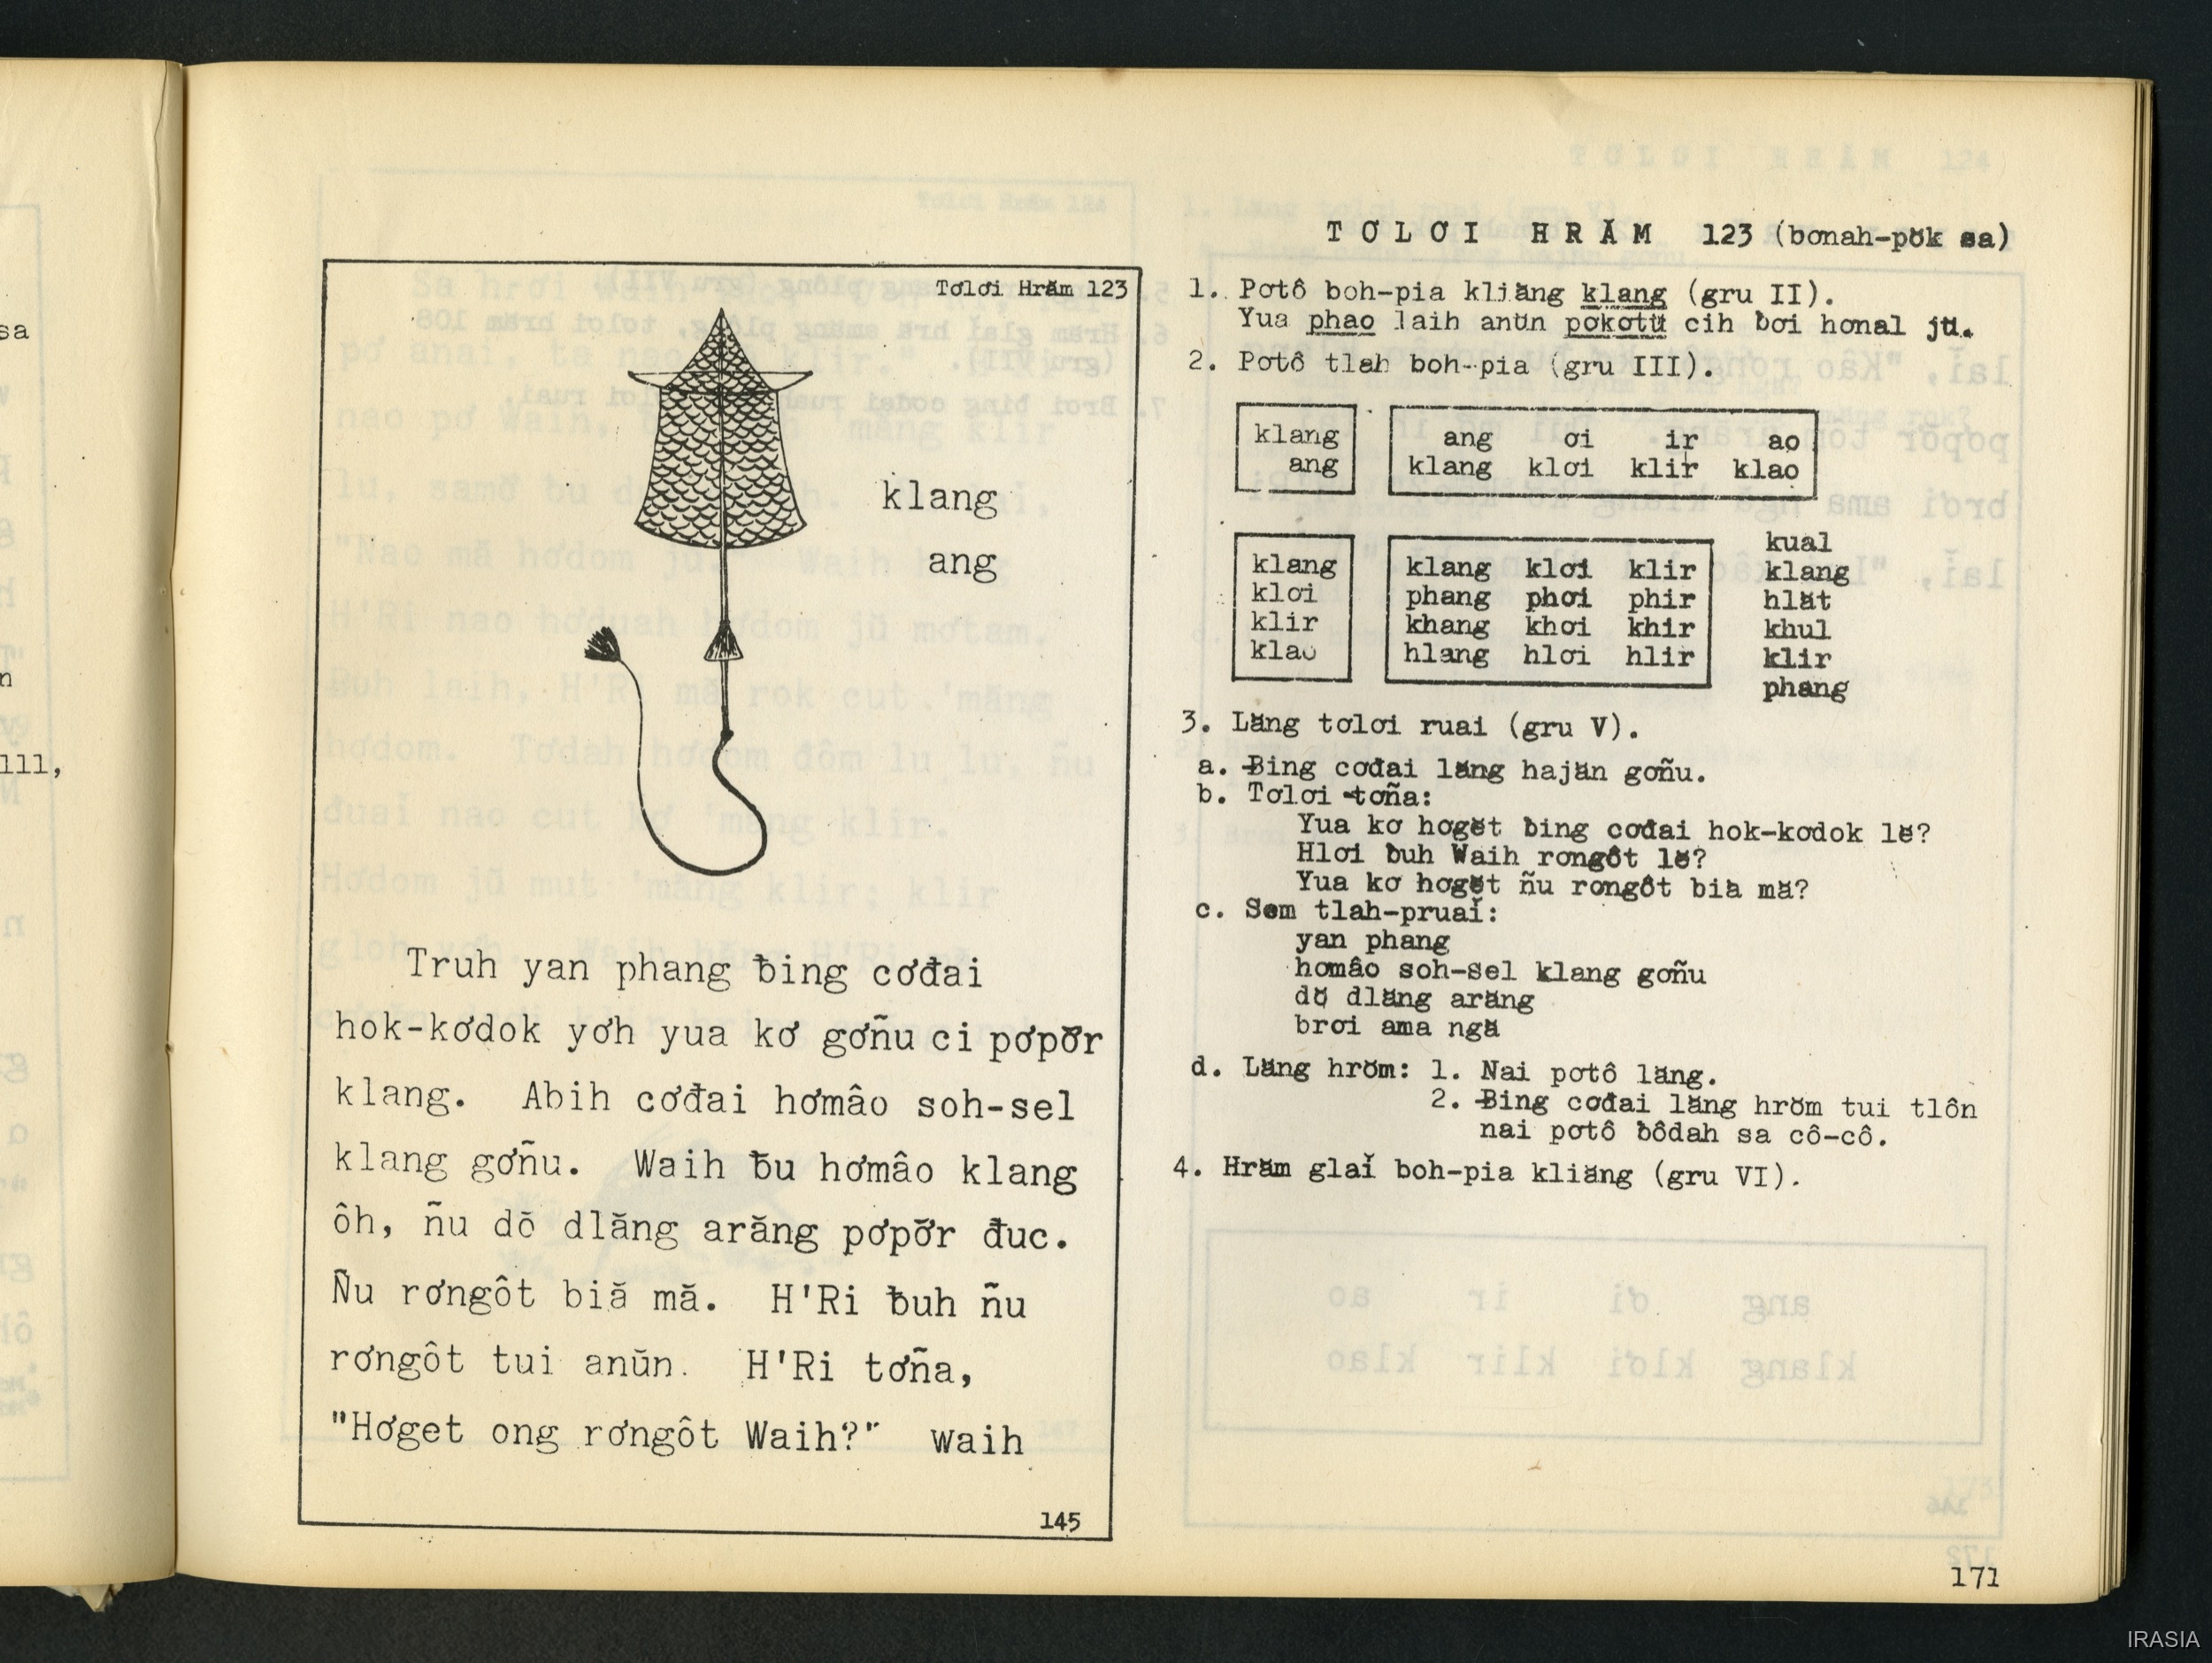 Tơlơi Hrăm 123
klang
ang
Truh yan phang ƀing cơđai
hok-kơdok yơh yua kơ gơñu ci pơpơ̆r
klang. Abih cơđai hơmâo soh-sel
klang gơñu. Waih ƀu hơmâo klang
ôh, ñu dŏ dlăng arăng pơpơ̆r đuc.
Ñu rơngôt biă mă. H'Ri ƀuh ñu
rơngôt tui anŭn. H'Ri tơña,
"Hơget ong rơngôt Waih?" Waih
145
TƠLƠI HRĂM 123 (bơnah-pŏk sa)
1. Pơtô boh-pia kliăng klang (gru II).
Yua phao laih anŭn pơkơtŭ cih ƀơi hơnal jŭ.
2. Pơtô tlah boh-pia (gru III).
klang
ang
ang ơi ir ao
klang klơi klir klao
klang
klơi
klir
klao
klang klơi klir
phang phơi phir
khang khơi khir
hlang hlơi hlir
kual
klang
hlăt
khul
klir
phang
3. Lăng tơlơi ruai (gru V).
a. Ƀing cơđai lăng hajăn gơñu.
b. Tơlơi tơña:
Yua kơ hơgĕt ƀing cơđai hok-kơdok lĕ?
Hlơi ƀuh Waih rơngôt lĕ?
Yua kơ hơgĕt ñu rơngôt biă mă?
c. Sem tlah-pruaĭ:
yan phang
hơmâo soh-sel klang gơñu
dŏ dlăng arăng
brơi ama ngă
d. Lăng hrŏm: 1. Nai pơtô lăng.
2. Ƀing cơđai lăng hrŏm tui tlôn
nai pơtô ƀôdah sa cô-cô.
4. Hrăm glaĭ boh-pia kliăng (gru VI).
171
IRASIA